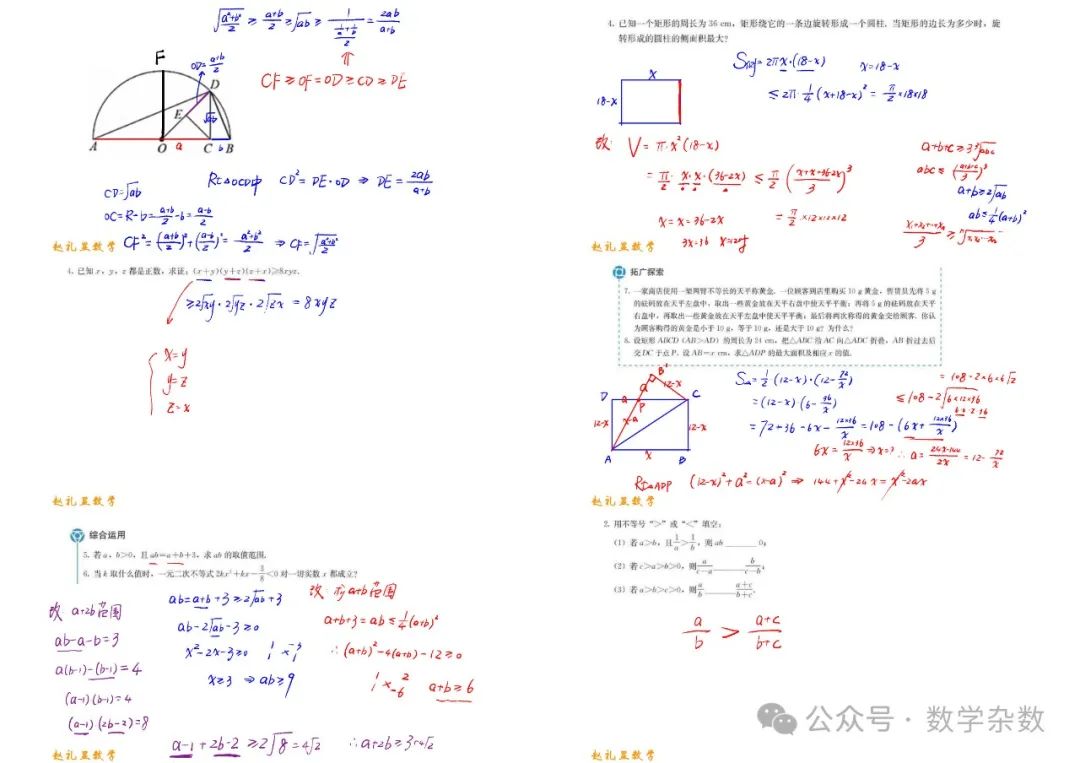 √((a²+b²)/2) ≥ (a+b)/2 ≥ √ab ≥ 1/((1/a+1/b)/2) = 2ab/(a+b)
CF ≥ OF = OD ≥ CD ≥ DE
F
OD = (a+b)/2
D
E
√ab
A O a C b B
CD=√ab
Rt△OCD中 CD²=DE·OD ⇒ DE=2ab/(a+b)
OC=R-b=(a+b)/2-b=(a-b)/2
CF²=((a+b)/2)²+((a-b)/2)²=(a²+b²)/2 ⇒ CF=√((a²+b²)/2)
赵礼显数学
4. 已知 x, y, z 都是正数, 求证: (x+y)(y+z)(z+x)≥8xyz.
≥2√xy · 2√yz · 2√zx = 8xyz
x=y
y=z
z=x
赵礼显数学
综合运用
5. 若 a, b>0, 且 ab=a+b+3, 求 ab 的取值范围.
6. 当 k 取什么值时, 一元二次不等式 2kx²+kx-3/8<0 对一切实数 x 都成立?
改: a+2b范围
ab-a-b=3
a(b-1)-(b-1)=4
(a-1)(b-1)=4
(a-1)(2b-2)=8
a-1+2b-2 ≥2√8=4√2 ∴a+2b≥3+4√2
ab=a+b+3≥2√ab+3
ab-2√ab-3≥0
x²-2x-3≥0
x≥3 ⇒ab≥9
改: 求a+b范围
a+b+3=ab≤1/4(a+b)²
∴(a+b)²-4(a+b)-12≥0
a+b≥6
赵礼显数学
4. 已知一个矩形的周长为 36 cm, 矩形绕它的一条边旋转形成一个圆柱. 当矩形的边长为多少时, 旋
转形成的圆柱的侧面积最大?
x
18-x
S侧=2πx·(18-x) x=18-x
≤2π·1/4(x+18-x)²=π/2×18×18
改: V=π·x²(18-x)
=π/2·x·x·(36-2x)≤π/2((x+x+36-2x)/3)³
x=x=36-2x =π/2×12×12×12
3x=36
a+b+c≥3∛abc
abc≤((a+b+c)/3)³
a+b≥2√ab
ab≤1/4(a+b)²
赵礼显数学
拓广探索
7. 一家商店使用一架两臂不等长的天平称黄金. 一位顾客到店里购买 10 g 黄金, 售货员先将 5 g
的砝码放在天平左盘中, 取出一些黄金放在天平右盘中使天平平衡; 再将 5 g 的砝码放在天平
右盘中, 再取出一些黄金放在天平左盘中使天平平衡; 最后将两次称得的黄金交给顾客. 你认
为顾客购得的黄金是小于 10 g, 等于 10 g, 还是大于 10 g? 为什么?
8. 设矩形 ABCD (AB>AD) 的周长为 24 cm, 把△ABC 沿 AC 向△ADC 折叠, AB 折过去后
交 DC 于点 P. 设 AB=x cm, 求△ADP 的最大面积及相应 x 的值.
B'
a 12-x
D a P C
12-x x-a 12-x
A x B
S△=1/2(12-x)·(12-72/x)
=(12-x)·(6-36/x)
=72+36-6x-12×36/x=108-(6x+12×36/x)
≤108-2√(6×12×36)
6·6·2·36
=108-2×6×6√2
6x=12×36/x ⇒x=? ∴a=(24x-144)/2x=12-72/x
Rt△ADP (12-x)²+a²=(x-a)² ⇒ 144+x²-24x=x²-2ax
赵礼显数学
2. 用不等号“>”或“<”填空:
(1) 若 a>b, 且 1/a>1/b, 则 ab ______ 0;
(2) 若 c>a>b>0, 则 a/(c-a) ______ b/(c-b);
(3) 若 a>b>c>0, 则 a/b ______ (a+c)/(b+c).
a/b > (a+c)/(b+c)
公众号 · 数学杂数
赵礼显数学